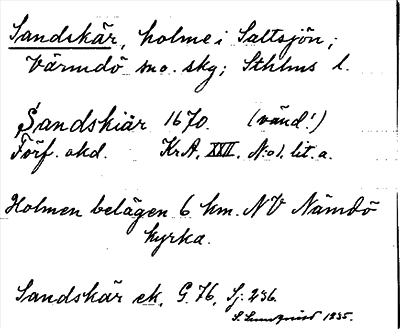 Sandskär, holme i Saltsjön,
Värmdö sno. skg; Sthlms l.
Sandskiär 1670. (vänd!)
Förf. okd. KrA, XXII, No 1. lit. a.
Holmen belägen 6 km. NV Nämdö
kyrka.
Sandskär ek. G. 76, Sj. 236.
S. Lundqvist 1935.